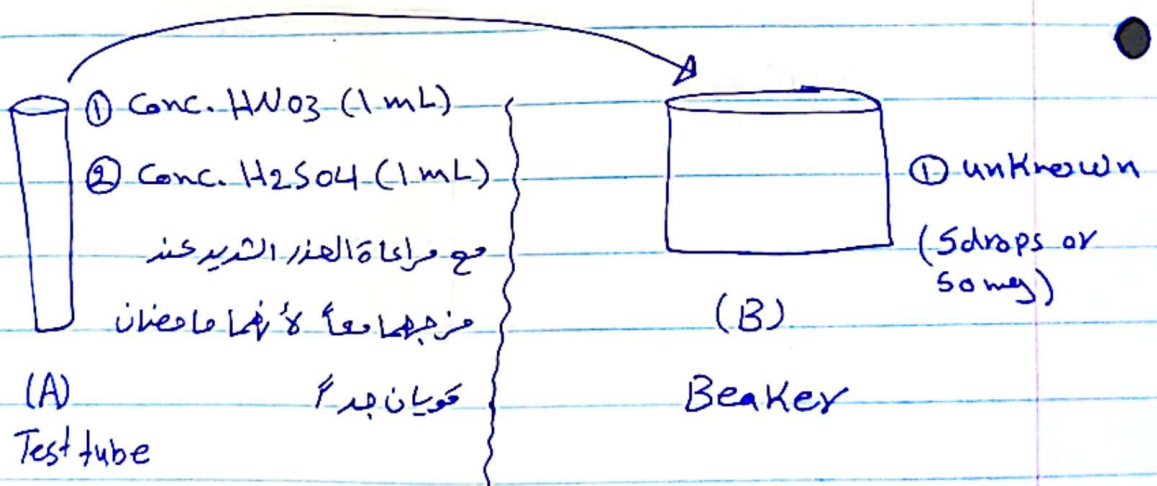 ① Conc. HNO3 (1 mL)
② Conc. H2SO4 (1 mL)
مع مراعاة الحذر الشديد عند
مزجهما معاً لأنهما حامضان
قويان جداً
(A)
Test tube
① unknown
(5drops or
50 mg)
(B)
Beaker